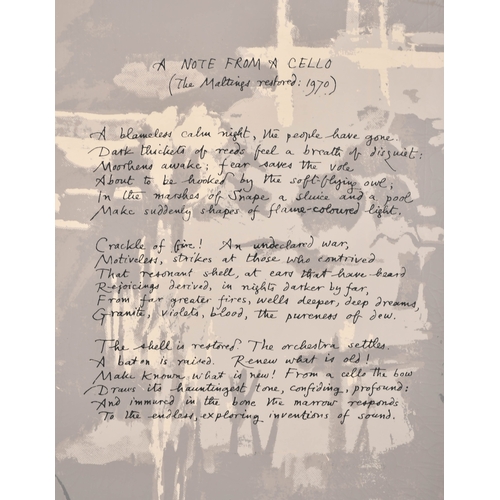 A NOTE FROM A CELLO
(The Maltings restored: 1970)
A blameless calm night, the people have gone.
Dark thickets of reeds feel a breath of disquiet:
Moorhens awake; fear saves the vole
About to be hooked by the soft-flying owl;
In the marshes of Snape a sluice and a pool
Make suddenly shapes of flame-coloured light.
Crackle of fire! An undeclared war,
Motiveless, strikes at those who contrived
That resonant shell, at ears that have heard
Rejoicings derived, in nights darker by far,
From far greater fires, wells deeper, deep dreams,
Granite, violets, blood, the pureness of dew.
The shell is restored. The orchestra settles.
A baton is raised. Renew what is old!
Make known what is new! From a cello the bow
Draws its hauntingest tone, confiding, profound;
And immured in the bone the marrow responds
To the endless, exploring inventions of sound.